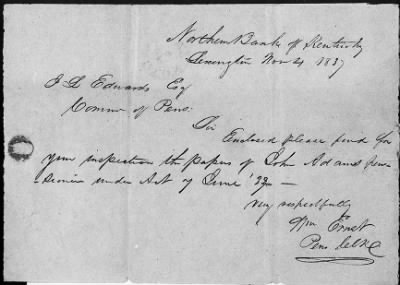 Northern Bank of Kentucky
Lexington Nov 24 1837
J L Edwards Esq
Comm of Pens:
Sir
Enclosed please find for
your inspection the papers of John Adams pen-
-sioner under Act of June '32 —
very respectfully
Wm Ernst
Pens